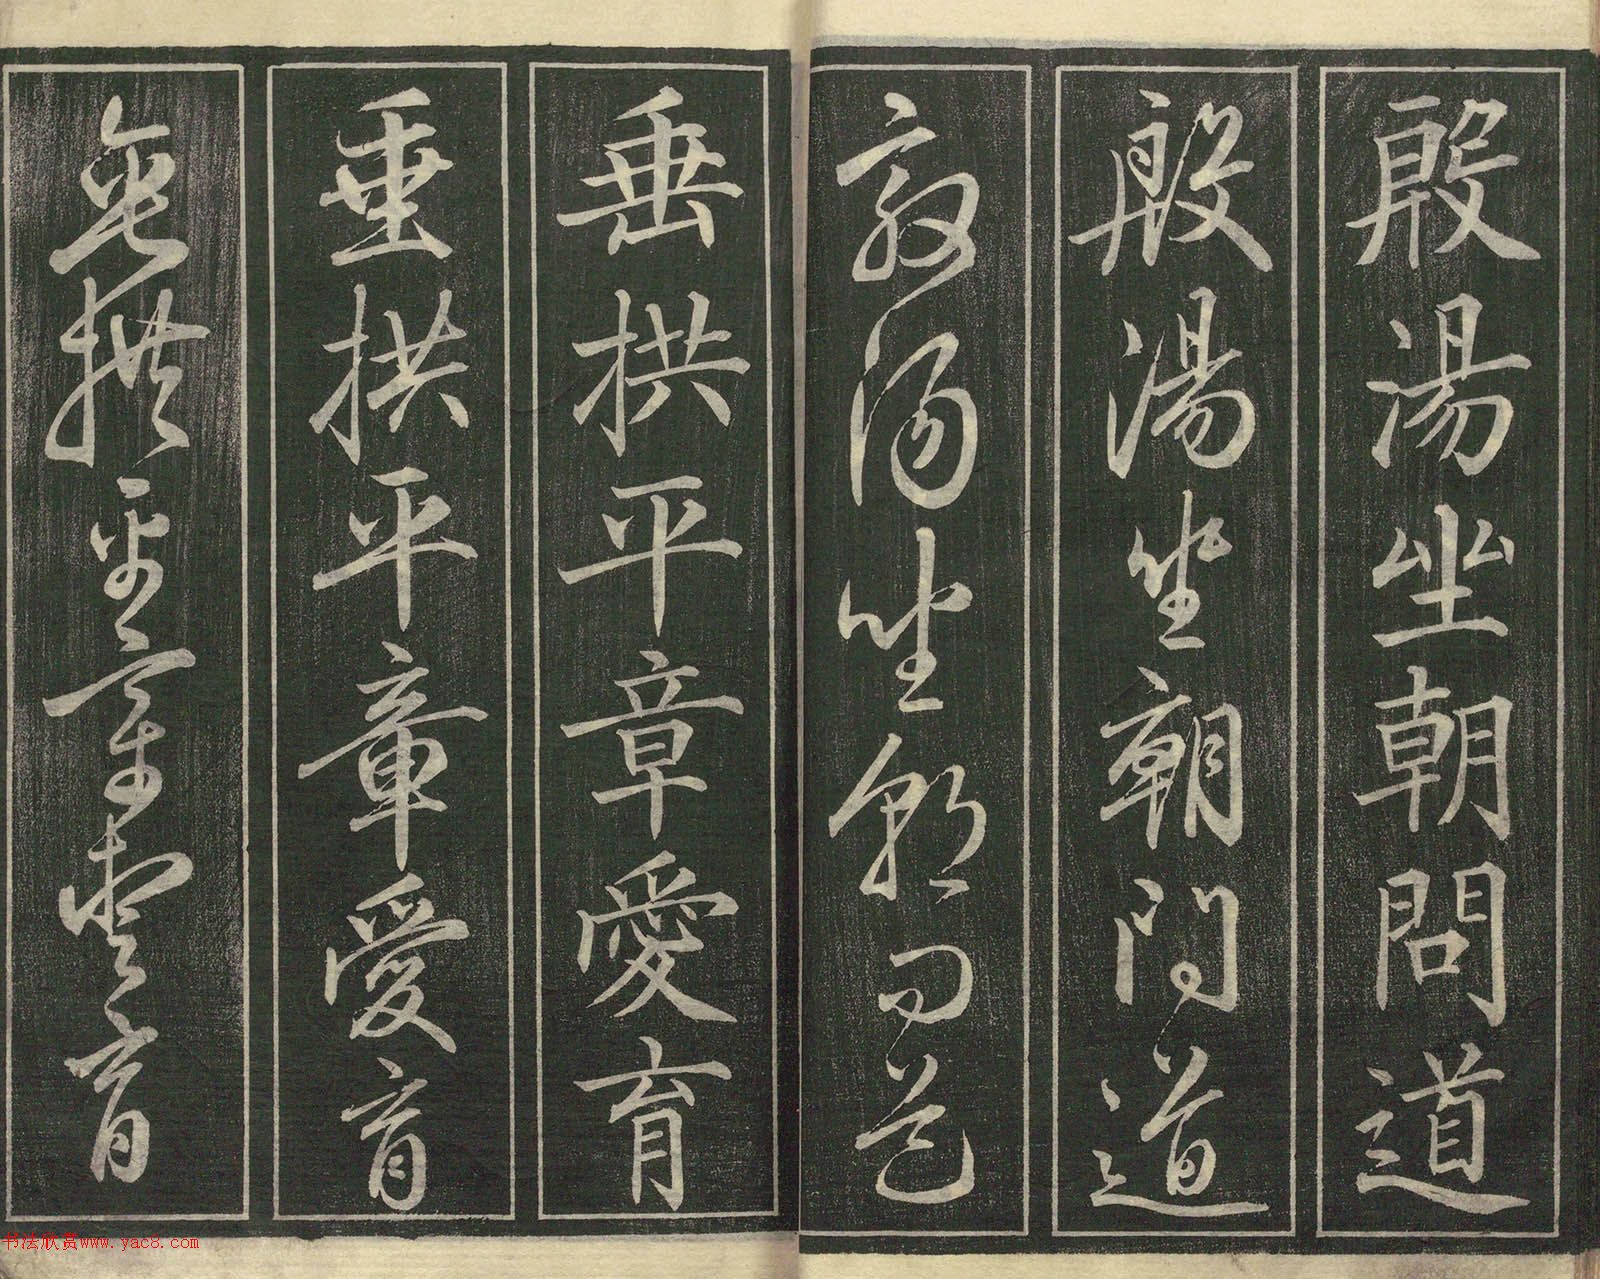 殷湯坐朝問道
殷湯坐朝問道
殷湯坐朝問道
垂拱平章愛育
垂拱平章愛育
垂拱平章愛育
书法欣赏www.yac8.com